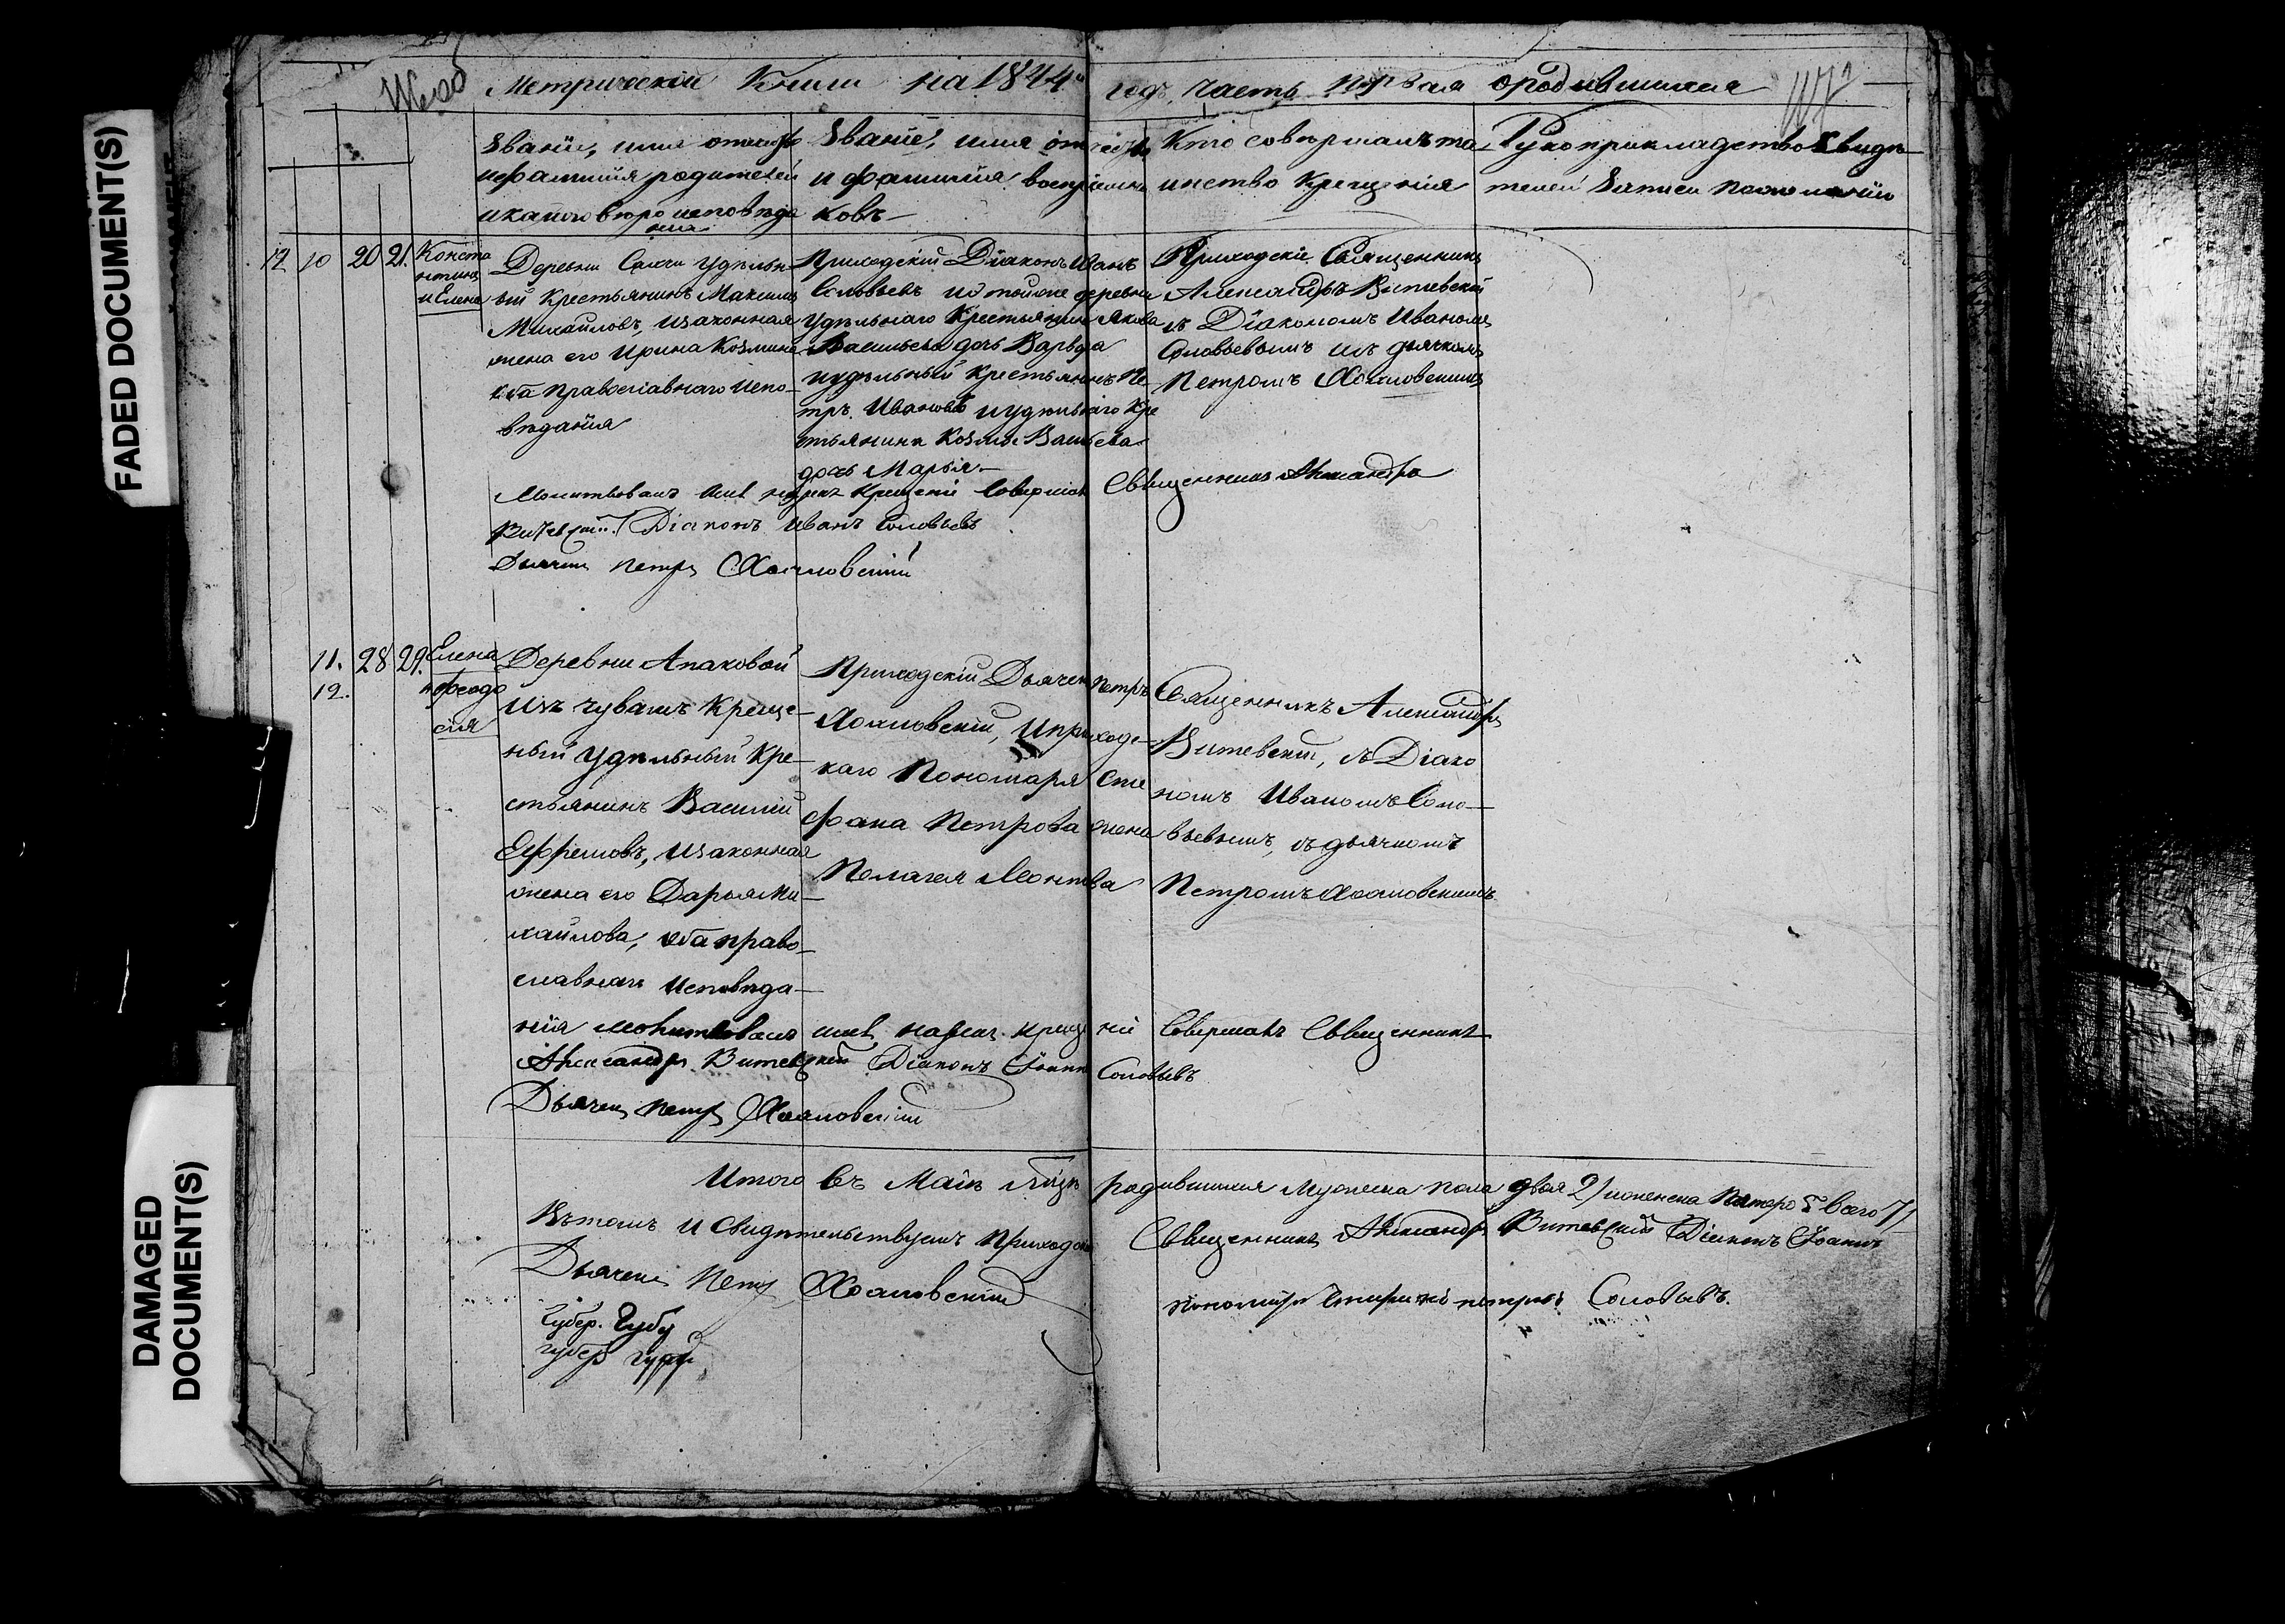 FADED DOCUMENT(S)
DAMAGED DOCUMENT(S)
Метрической Книги на 1844й годъ, часть первая о родившихся
Званіе, имя отчество
и фамилія родителей
и какого вѣроисповѣда
нія
Званіе, имя отчество
и фамилія воспріемни
ковъ
Кто совершалъ та
инство крещенія
Рукоприкладство свидѣ
телей записи по желанію
12 10 20 21.
Конста
нтинъ
и Елена
Деревни Удѣльн
ый Крестьянинъ Максимъ
Михайловъ, изаконная
жена его Ирина Козмина
оба православнаго испо-
вѣданія
Приходскій Діаконъ Иванъ
Соловьевъ и тойже деревни
Удѣльнаго Крестьянина Якова
Васильева дочь Варвара
иудѣльный крестьянинъ Пе-
тръ Ивановъ иудѣльнаго Кре
стьянина Козмы Васильева
дочь Марья
Приходскій Священникъ
Александръ Витевскій
съ Діакономъ Иваномъ
Соловьевымъ и съ дьячкомъ
Петромъ
Молитвовалъ имя нарекъ Крещеніе Совершалъ Священникъ Александръ
Витевскій Діаконъ Иванъ Соловьевъ
Дьячекъ Петръ
11. 28 29.
12.
Елена
и Феодо
сія
Деревни Апаковой
изъ чувашъ креще-
ный удѣльный Кре-
стьянинъ Василій
Ефремовъ, изаконная
жена его Дарья Ми-
хайлова, оба право-
славнаго исповѣда-
Приходскій Дьячекъ Петръ
и приходс-
каго Пономаря Сте
фана Петрова жена
Пелагея Леонтьева
Священникъ Александръ
Витевскій, съ Діако
номъ Иваномъ Соло-
вьевымъ, съ дьячкомъ
Петромъ
нія молитвовалъ имя нарекъ крещеніе Совершалъ Священникъ
Александръ Витевскій Діаконъ Іоаннъ Соловьевъ
Дьячекъ Петръ
Итого въ Маіѣ мѣсяцѣ родившихся мужеска пола двое 2/ женска пятеро 5 всего 7/
Въ томъ и свидѣтельствуемъ Приходскій Священникъ Александръ Витевскій Діаконъ Іоаннъ
Соловьевъ.
Дьячекъ Петръ
пономарь Стефанъ Петровъ
Губер. Губу
губер